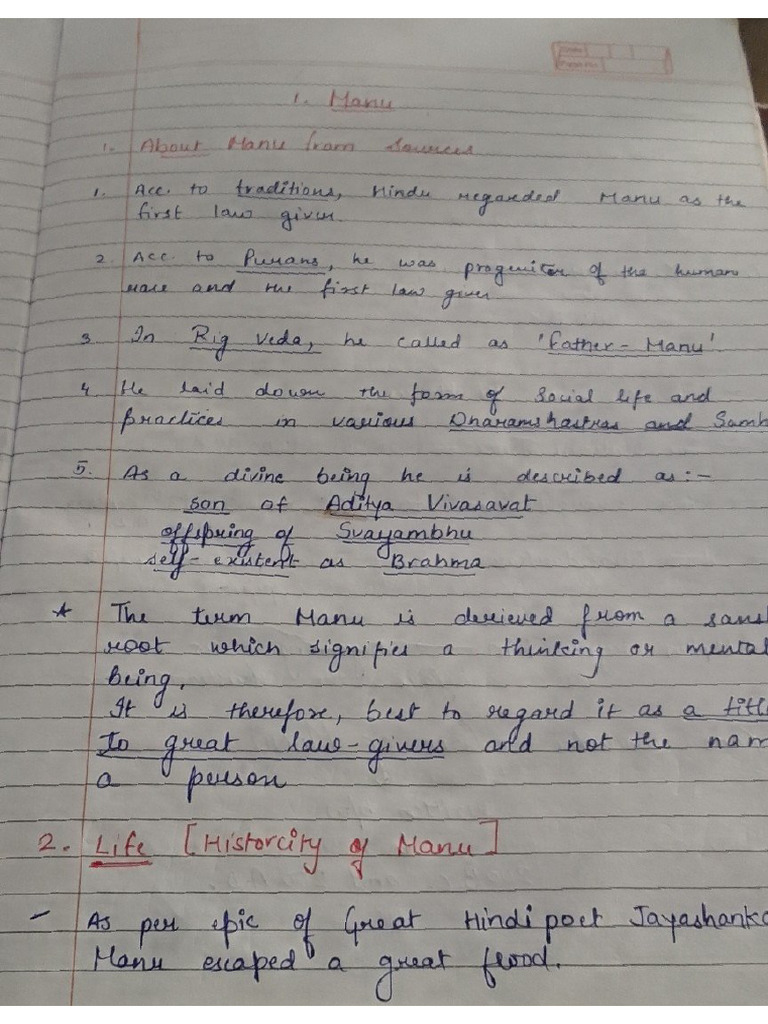 1. Manu
1. About Manu from sources
1. Acc. to traditions, Hindu regarded Manu as the
first law giver
2. Acc. to Purans, he was progenitor of the human
race and the first law giver
3. In Rig Veda, he called as 'Father-Manu'
4. He laid down the form of social life and
practices in various Dharamshastras and Samh
5. As a divine being he is described as:-
son of Aditya Vivasavat
offspring of Svayambhu
self-existent as Brahma
* The term Manu is derieved from a sans
root which signifies a thinking or mental
being.
It is therefore, best to regard it as a titl
to great law-givers and not the nam
a person
2. Life [Historcity of Manu]
- As per epic of Great Hindi poet Jayashanka
Manu escaped a great flood.